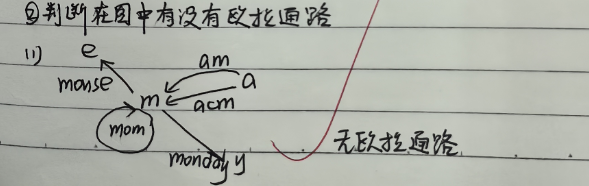 ②判断在图中有没有欧拉通路
(1)
e
am
mouse
a
m
acm
mom
monday y
无欧拉通路